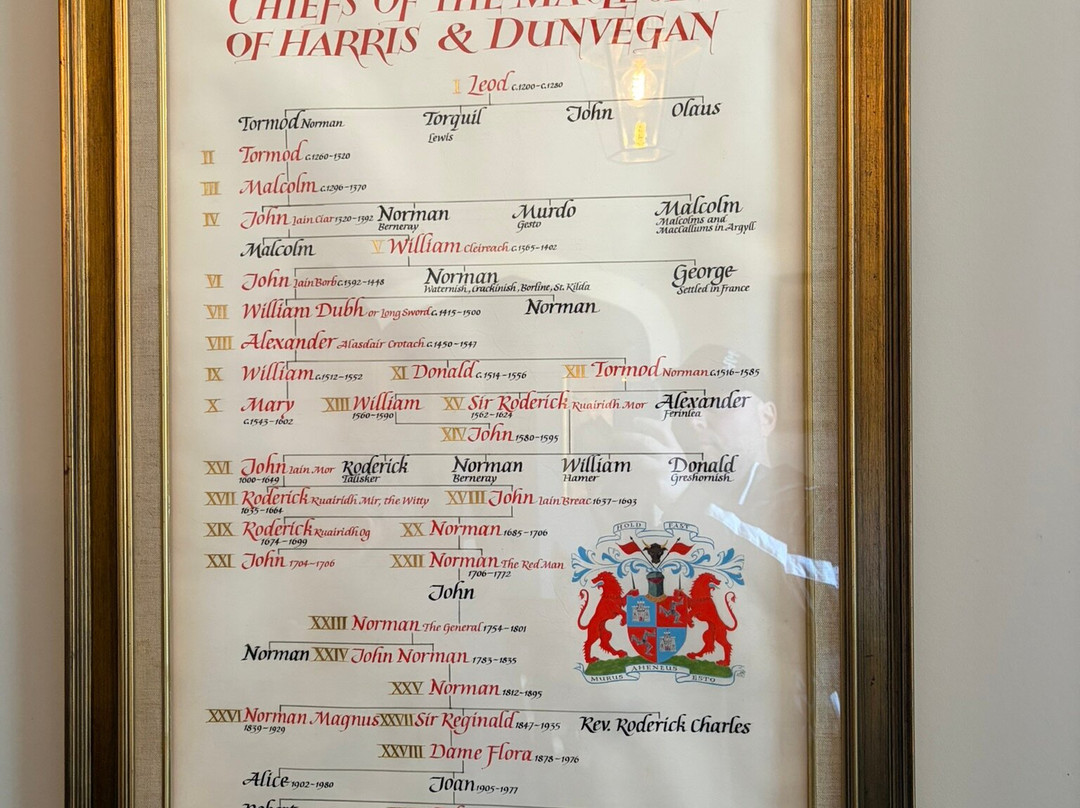 CHIEFS OF THE
OF HARRIS & DUNVEGAN
I Leod c.1200-c.1280
Tormod Norman Torquil John Olaus
Lewis
II Tormod c.1260-1320
III Malcolm c.1296-1370
IV John Iain Ciar 1320-1392 Norman Murdo Malcolm
Berneray Gesto Malcolms and
MacCallums in Argyll
Malcolm V William Cleireach c.1365-1402
VI John Iain Borb c.1392-1448 Norman George
Waternish, Crackinish, Borline, St. Kilda Settled in France
VII William Dubh or Long Sword c.1415-1500 Norman
VIII Alexander Alasdair Crotach c.1450-1547
IX William c.1512-1552 XI Donald c.1514-1556 XII Tormod Norman c.1516-1585
X Mary XIII William XV Sir Roderick Ruairidh Mor Alexander
c.1543-1602 1560-1590 1562-1624 Ferinlea
XIV John 1580-1595
XVI John Iain Mor Roderick Norman William Donald
1600-1649 Talisker Berneray Hamer Greshornish
XVII Roderick Ruairidh Mir, the Witty XVIII John Iain Breac 1637-1693
1635-1664
XIX Roderick Ruairidh Og XX Norman 1685-1706
1674-1699
XXI John 1704-1706 XXII Norman The Red Man
1706-1772
John
HOLD FAST
XXIII Norman The General 1754-1801
Norman XXIV John Norman 1783-1835
MURUS AHENEUS ESTO
XXV Norman 1812-1895
XXVI Norman Magnus XXVII Sir Reginald 1847-1935 Rev. Roderick Charles
1839-1929
XXVIII Dame Flora 1878-1976
Alice 1902-1980 Joan 1905-1977